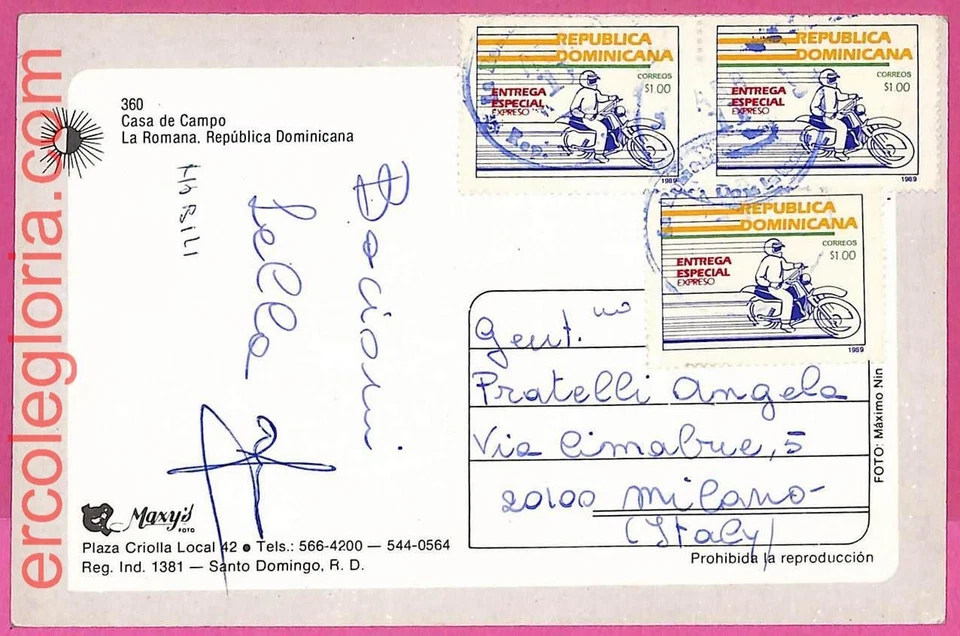 360
Casa de Campo
La Romana, República Dominicana
REPUBLICA
DOMINICANA
CORREOS
$1.00
ENTREGA
ESPECIAL
EXPRESO
1989
REPUBLICA
DOMINICANA
CORREOS
$1.00
ENTREGA
ESPECIAL
EXPRESO
1989
REPUBLICA
DOMINICANA
CORREOS
$1.00
ENTREGA
ESPECIAL
EXPRESO
1989
Bacioni
Lella
Gent.
Pratelli Angela
Via Cimabue, 5
20100 Milano
(Italy)
FOTO: Máximo Nin
Maxy's
FOTO
Plaza Criolla Local 42 ● Tels.: 566-4200 — 544-0564
Reg. Ind. 1381 — Santo Domingo, R. D.
Prohibida la reproducción
ercolegloria.com